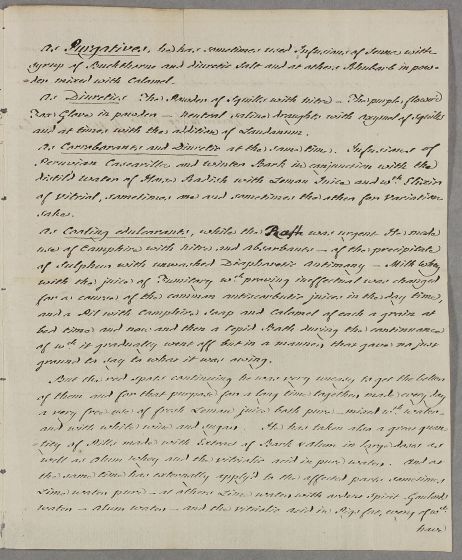 As Purgatives, he has sometimes used Infusions of Senna with
syrup of Buckthorn and diuretic Salt and at others Rhubarb in pow-
-der mixed with Calomel.
As Diuretics The Powder of Squills with nitre - The purple flower'd
Fox Glove in powder - neutral saline draughts with oxymel of Squills
and at times with the addition of Laudanum.
As Corroborants and Diuretic at the same time. Infusions of
Peruvian Cascarilla and Winters Bark in conjunction with the
distill'd water of Horse Radish with Lemon Juice and wth Elixir
of Vitriol, sometimes one and sometimes the other for Variation
sake.
As Cooling edulcorants, while the Rash was urgent He made
use of Camphire with Nitre and Absorbents - of the precipitate
of Sulphur with unwashed Diaphoretic Antimony - Milk Whey
with the juice of Fumitory wch proving ineffectual was changed
for a course of the common antiscorbutic juices in the day time,
and a Pill with Camphire, Soap and Calomel of each a grain at
bed time and now and then a tepid Bath during the continuance
of wch it gradually went off but in a manner that gave no just
ground to say to what it was owing.
But the red spots continuing he was very uneasy to get the better
of them and for that purpose for a long time together made every day
a very free use of fresh Lemon juice both pure - mixed wth water -
and with white wine and sugar. He has taken also a great quan-
-tity of Pills made with Extract of Bark & Alum in large doses as
well as Alum Whey and the vitriolic acid in pure water. And at
the same time has externally apply'd to the affected parts sometimes
Lime water pure - at others Lime water with ardent spirit Goulard
water - Alum water - and the vitriolic acid in Hogs fat, every of wch
have